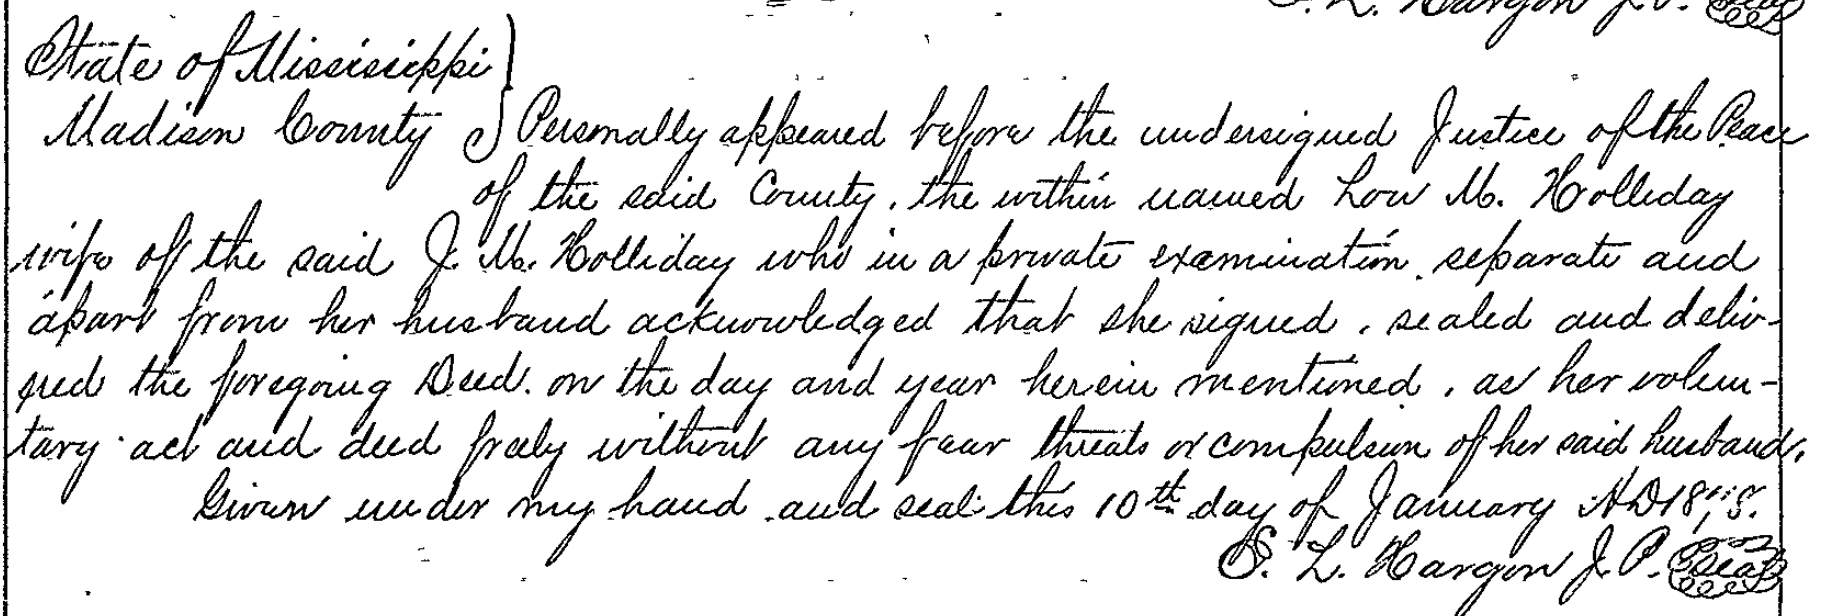 S. L. Hargon J. P. Seal
State of Mississippi }
Madison County } Personally appeared before the undersigned Justice of the Peace
of the said County, the within named Lou M. Holliday
wife of the said J. M. Holliday who in a private examination, separate and
apart from her husband acknowledged that she signed, sealed and deliv-
ered the foregoing Deed. on the day and year herein mentioned, as her volun-
tary act and deed freely without any fear threats or compulsion of her said husband.
Given under my hand and seal this 10th day of January AD
S. L. Hargon J. P. Seal